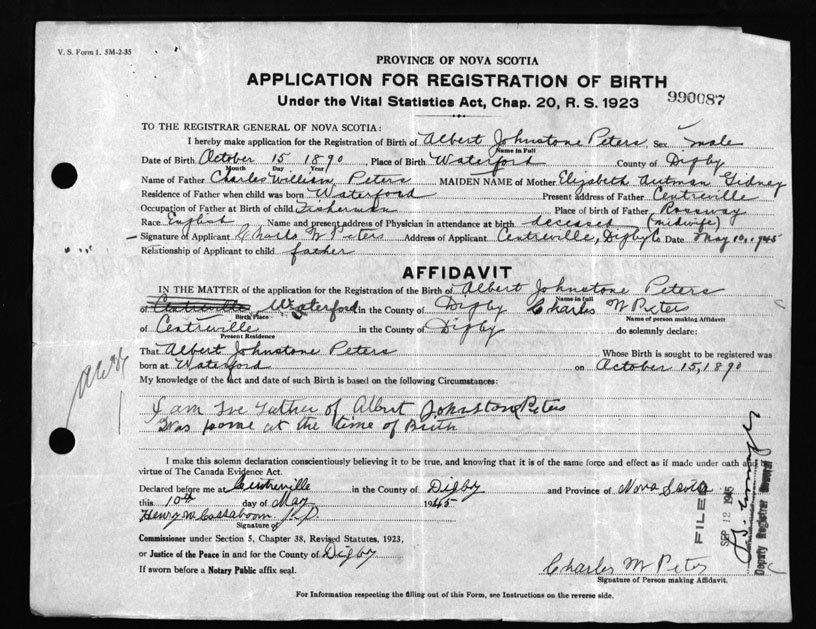 V. S. Form 1. 5M-2-35
PROVINCE OF NOVA SCOTIA
APPLICATION FOR REGISTRATION OF BIRTH
990087
Under the Vital Statistics Act, Chap. 20, R. S. 1923
TO THE REGISTRAR GENERAL OF NOVA SCOTIA:
I hereby make application for the Registration of Birth of Albert Johnstone Peters Sex male
Name in Full
Date of Birth October 15 1890, Place of Birth Waterford County of Digby
Month Day Year
Name of Father Charles William Peters MAIDEN NAME of Mother Elizabeth Gidney
Residence of Father when child was born Waterford Present address of Father Centreville
Occupation of Father at Birth of child Fisherman Place of birth of Father Rossway
Race English Name and present address of Physician in attendance at birth deceased (midwife)
Signature of Applicant Charls W Peters Address of Applicant Centreville, Digby Co Date May 10, 1945
Relationship of Applicant to child father
AFFIDAVIT
IN THE MATTER of the application for the Registration of the Birth of Albert Johnstone Peters
Name in full
of Centreville Waterford in the County of Digby Charles W Peter
Birth Place Name of person making Affidavit
of Centreville in the County of Digby do solemnly declare:
Present Residence
That Albert Johnstone Peters Whose Birth is sought to be registered was
born at Waterford on October 15, 1890
My knowledge of the fact and date of such Birth is based on the following Circumstances:
I am Father of Albert Johnston Peters
Was at the time of Birth
I make this solemn declaration conscientiously believing it to be true, and knowing that it is of the same force and effect as if made under oath and in
virtue of The Canada Evidence Act.
Declared before me at Centreville in the County of Digby and Province of Nova Scotia
this 10th day of May 1945
Henry W Cossaboom J.P.
Signature of
Commissioner under Section 5, Chapter 38, Revised Statutes, 1923,
or Justice of the Peace in and for the County of Digby
If sworn before a Notary Public affix seal.
Charles W Peter
Signature of Person making Affidavit.
FILED
SEP 12 1945
Deputy Registrar General
For Information respecting the filling out of this Form, see Instructions on the reverse side.